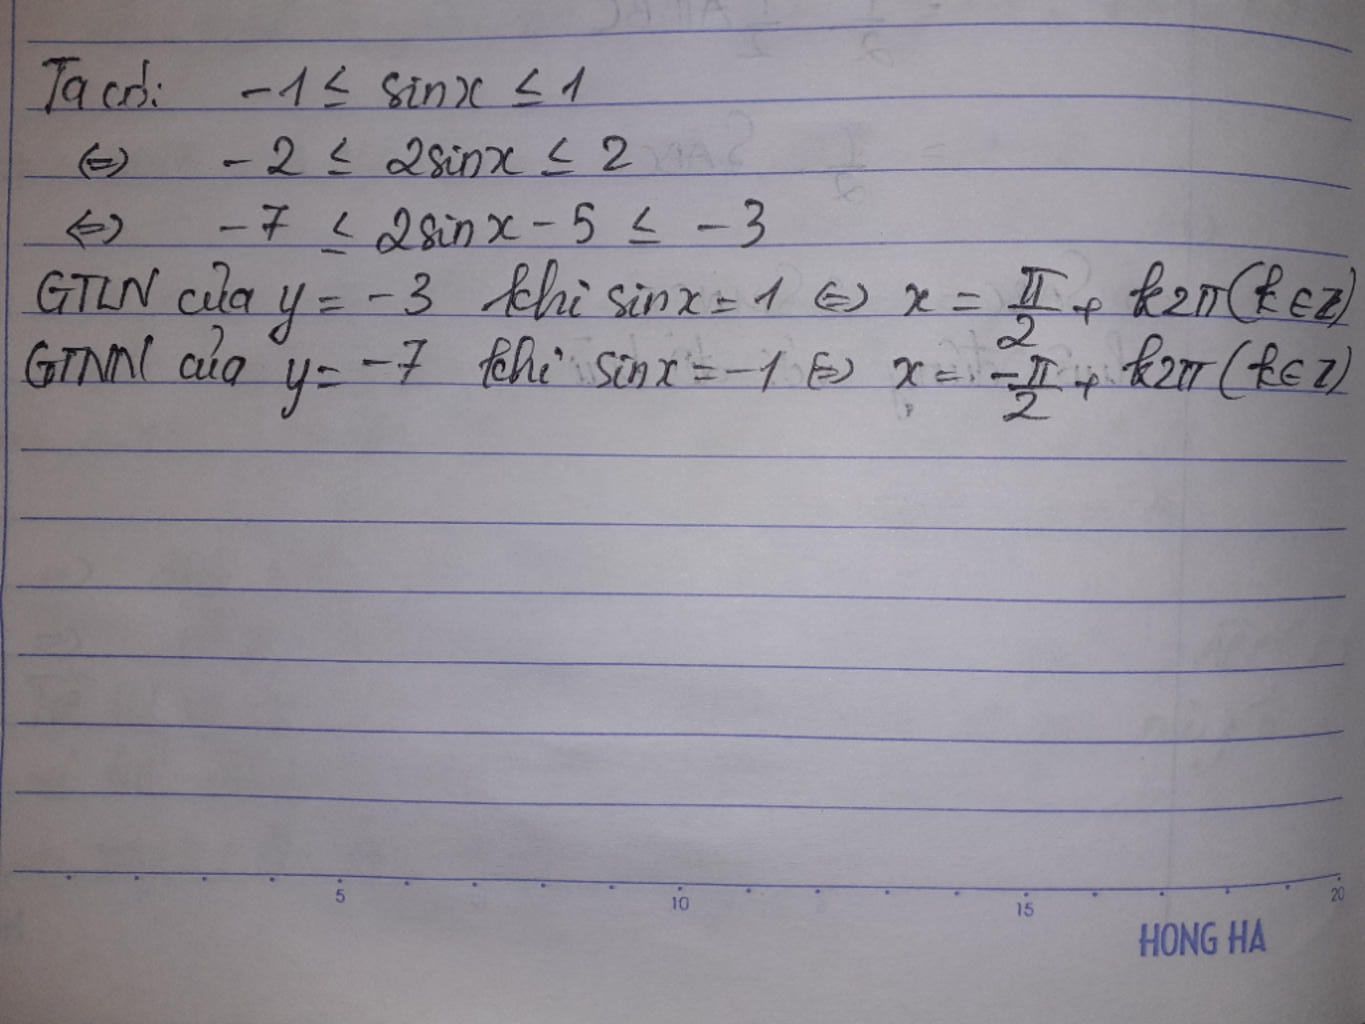 Ta có: -1 ≤ sinx ≤ 1
⇔ -2 ≤ 2sinx ≤ 2
⇔ -7 ≤ 2sinx - 5 ≤ -3
GTLN của y = -3 khi sinx = 1 ⇔ x = π/2 + k2π (k ∈ Z)
GTNN của y = -7 khi sinx = -1 ⇔ x = -π/2 + k2π (k ∈ Z)
5 10 15 20
HONG HA